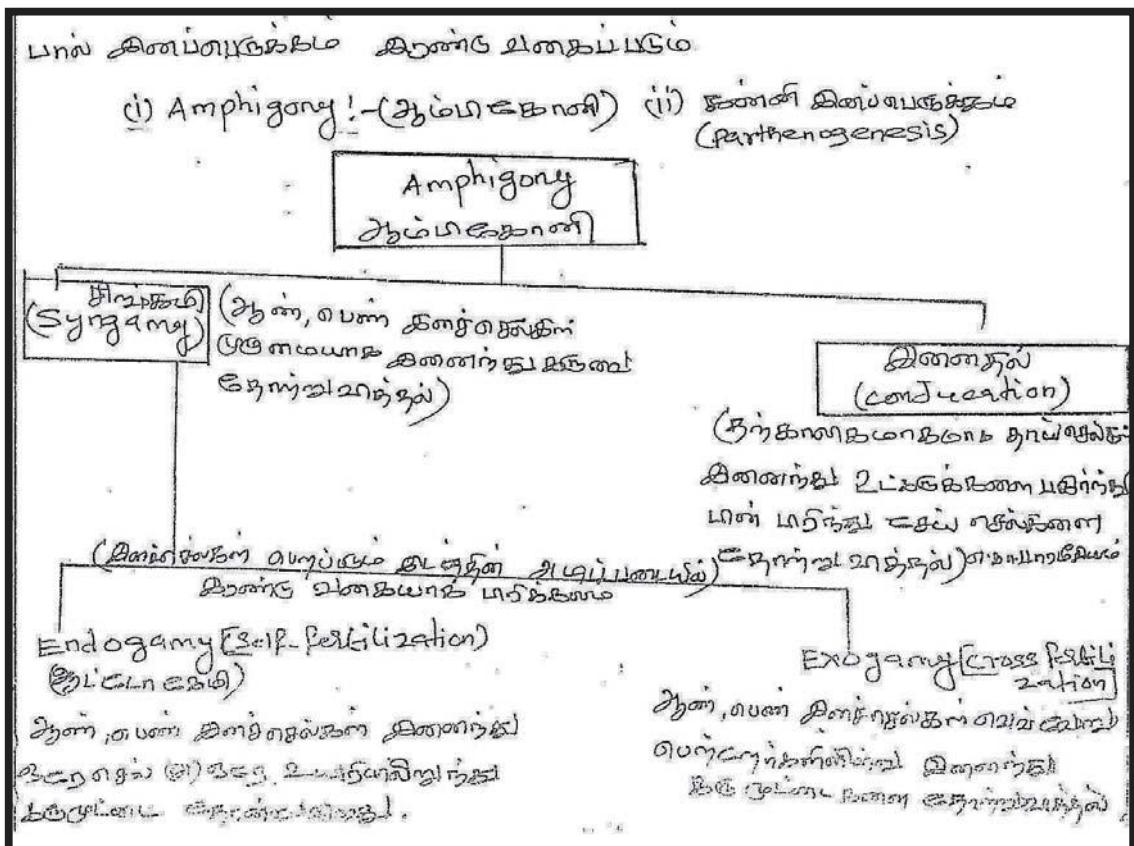 பால் இனப்பெருக்கம் இரண்டு வகைப்படும்
(i) Amphigony :-(ஆம்பிகோனி) (ii) கன்னி இனப்பெருக்கம்
(parthenogenesis)
Amphigony
ஆம்பிகோனி
சின்கமி
(Syngamy)
(ஆண், பெண் இனச்செல்கள்
முழுமையாக இணைந்து கருவை
தோற்றுவித்தல்)
இணைதல்
(conjucation)
(தற்காலிகமாக தாய்செல்கள்
இணைந்து உட்கருக்களை பகிர்ந்து
பின் பிரிந்து சேய் செல்களை
தோற்றுவித்தல்) எ.கா பாரமீசியம்
(இனச்செல்கள் பெறப்படும் இடத்தின் அடிப்படையில்)
இரண்டு வகையாக பிரிக்கலாம்
Endogamy [Self-fertilization)
(ஆட்டோகேமி)
ஆண், பெண் இனச்செல்கள் இணைந்து
ஒரே செல் (அ) ஒரே உயிரியிலிருந்து
கருமுட்டை தோன்றுகிறது.
Exogamy [Cross fertili
zation]
ஆண், பெண் இனச்செல்கள் வெவ்வேறு
பெற்றோர்களிலிருந்து இணைந்து
கரு முட்டைகளை தோற்றுவித்தல்